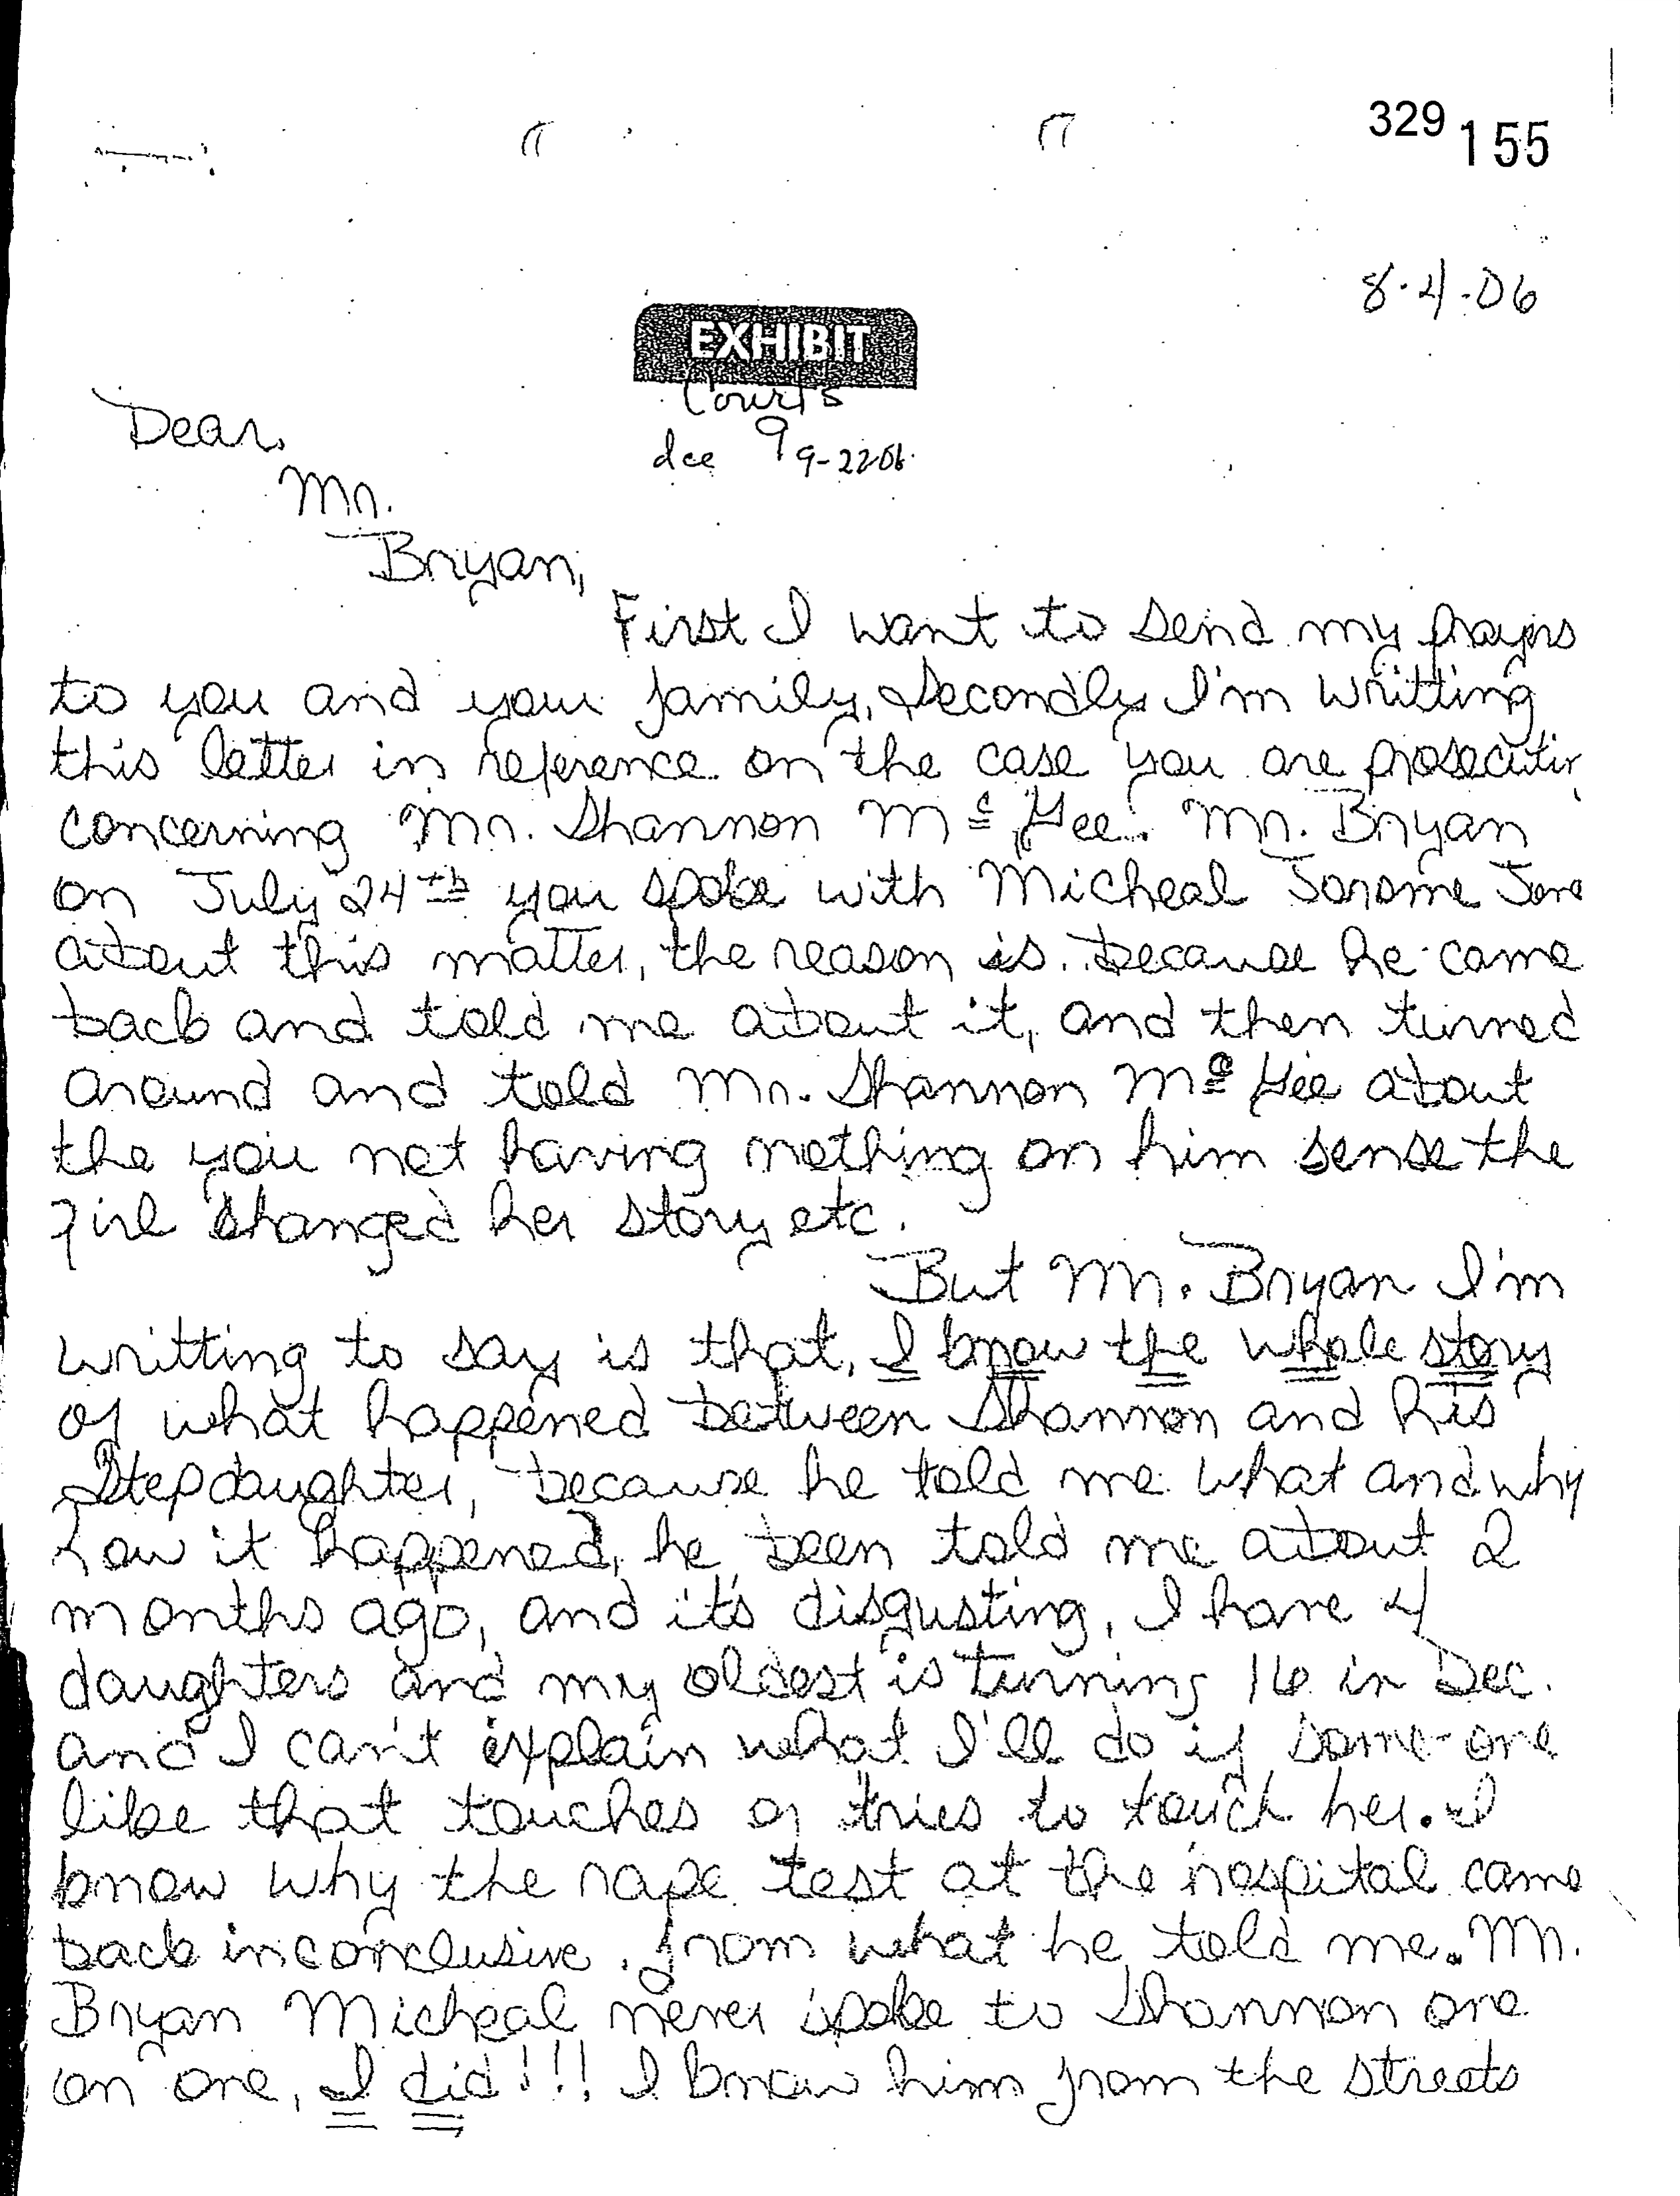 329 155
8·4·06
EXHIBIT
Courts
9
dce 9-22-06
Dear,
Mr.
Bryan,
First I want to send my prayrs
to you and your family, Secondly I'm writting
this letter in reference on the case you are prosecutin
concerning Mr. Shannon McGee. Mr. Bryan
on July 24th you spoke with Micheal Jorome Jone
about this matter, the reason is because he came
back and told me about it, and then turned
around and told Mr. Shannon McGee about
the you not having nothing on him sense the
girl changed her story etc.
But Mr. Bryan I'm
writting to say is that, I know the whole story
of what happened between Shannon and his
Stepdaughter, because he told me what and why
how it happened, he been told me about 2
months ago, and it's disgusting, I have 4
daughters and my oldest is turning 16 in Dec.
and I can't explain what I'll do if some-one
like that touches or tries to touch her. I
know why the rape test at the hospital came
back inconclusive, from what he told me. Mr.
Bryan Micheal never spoke to Shannon one
on one, I did!!! I know him from the streets